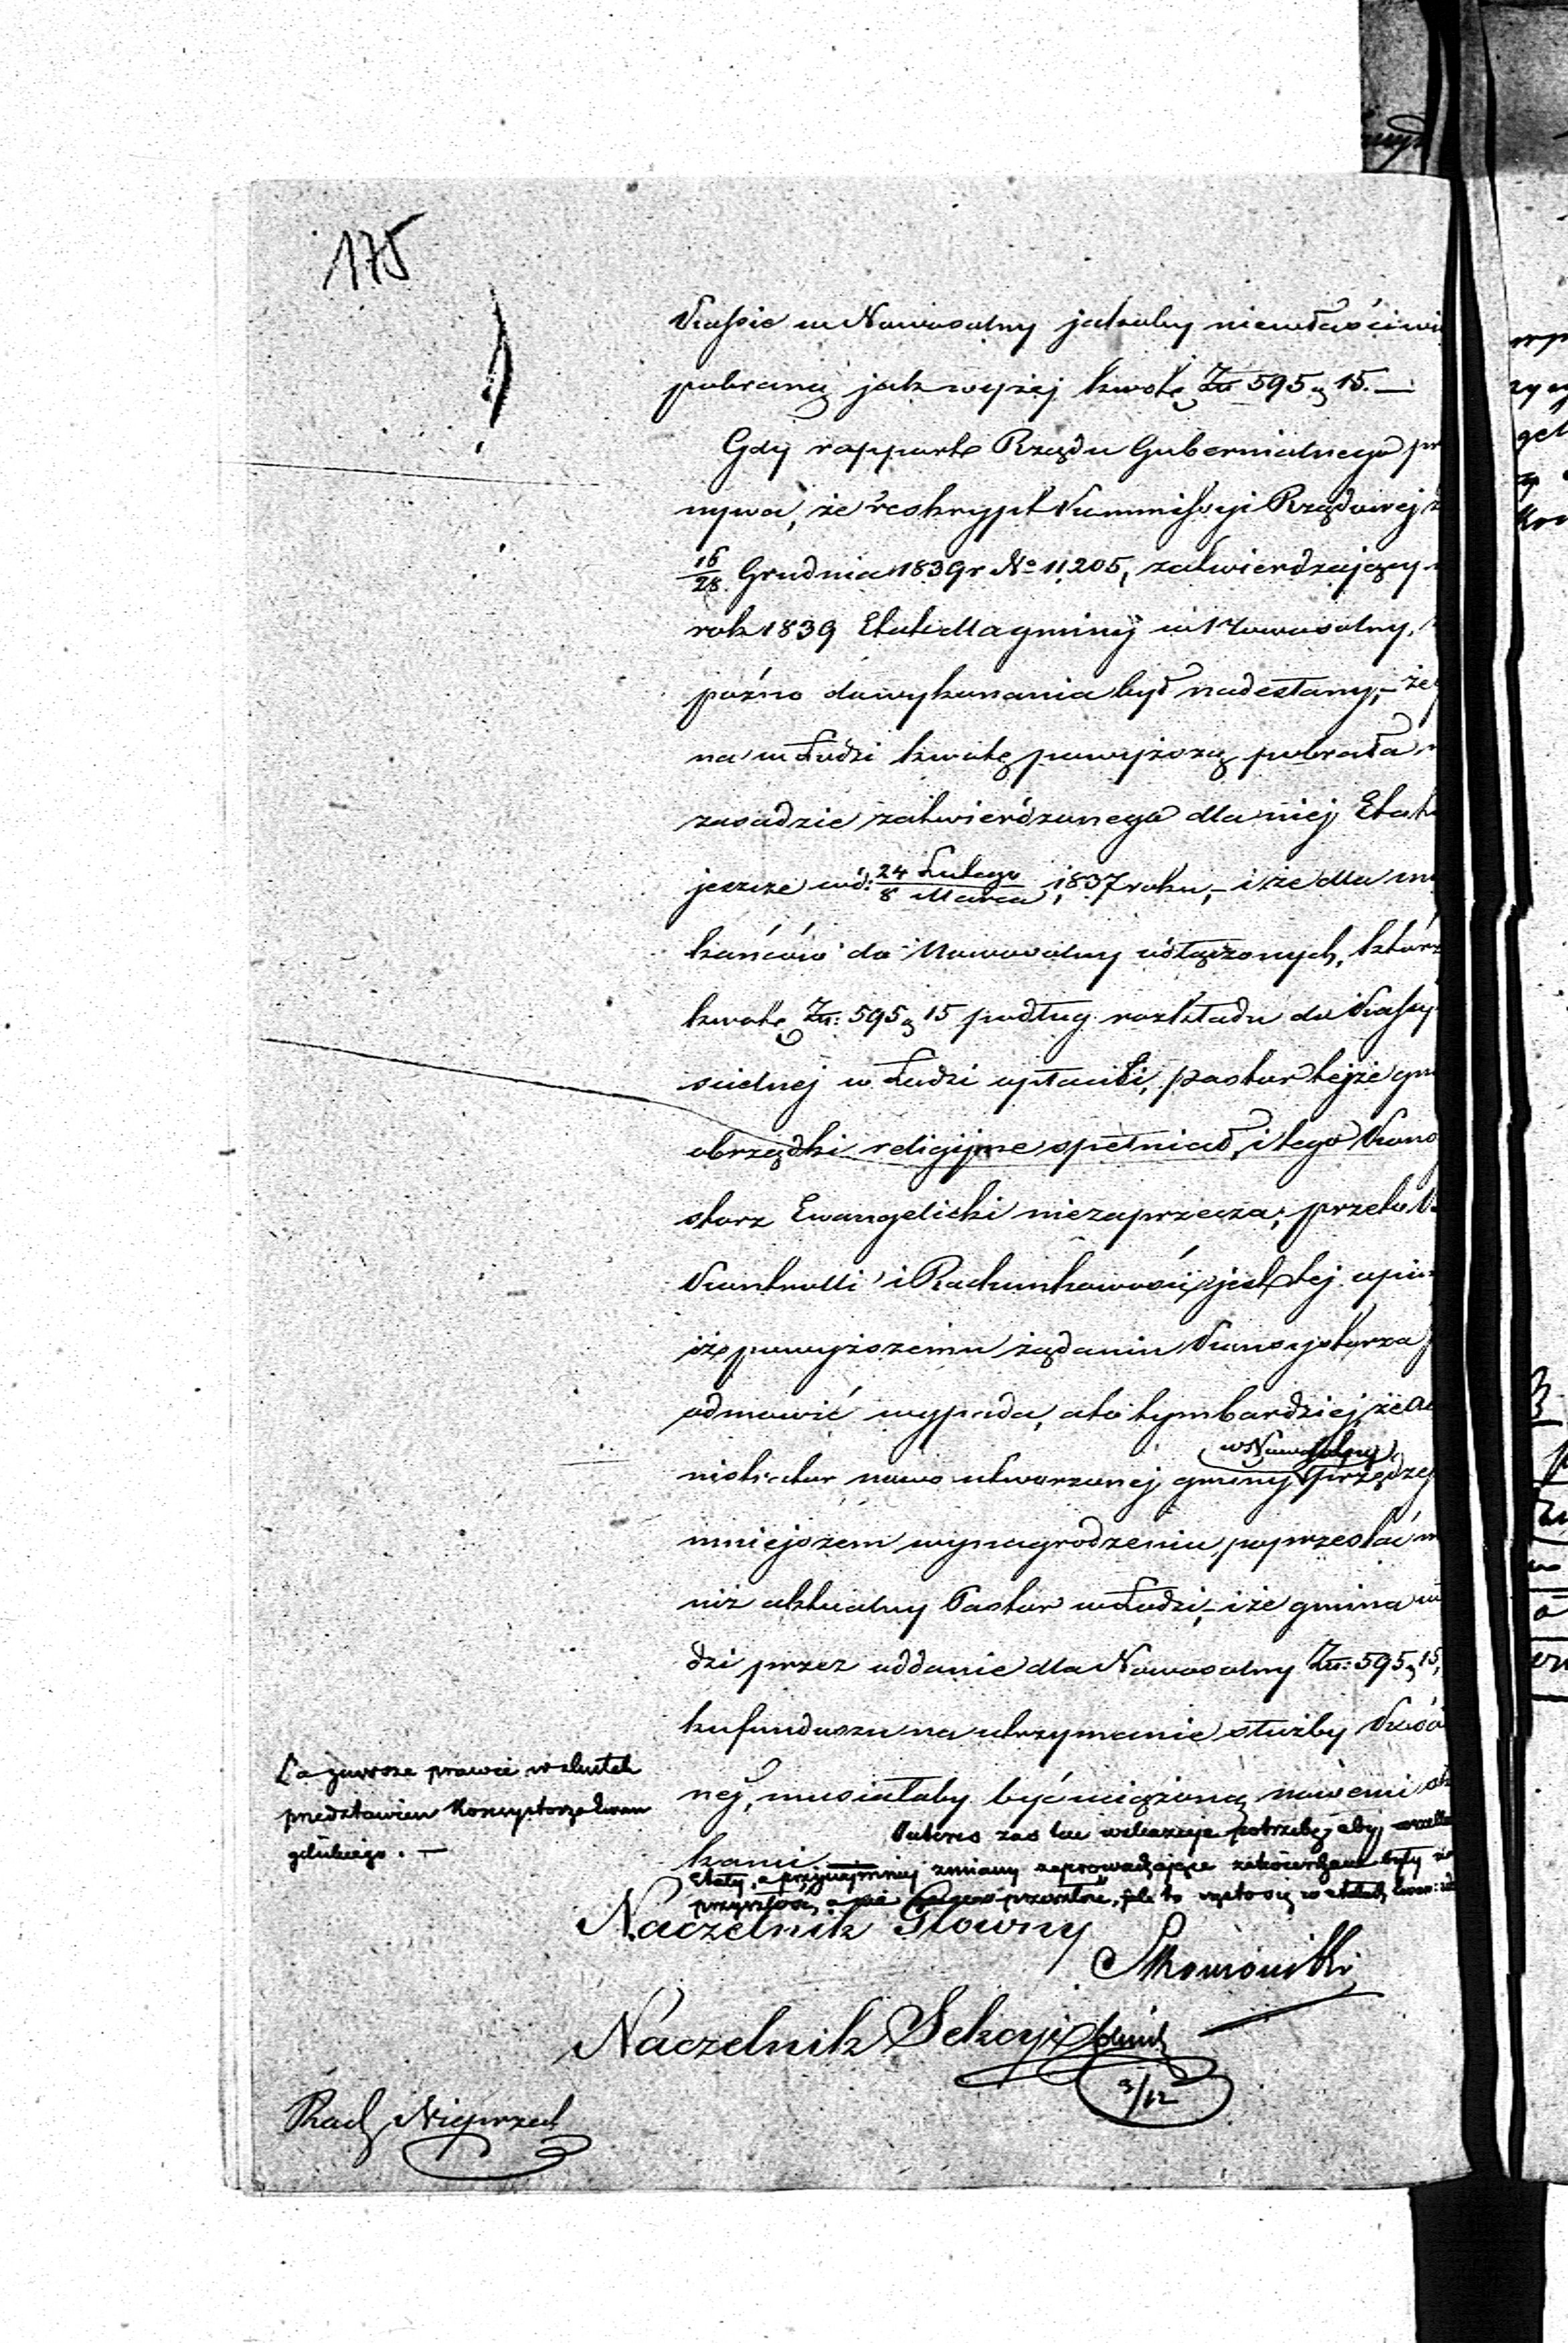 175
Kassie w Nowosolny jakoby niewłaściwi
pobraną jak wyżej kwotę Złt 595 g 15. —
Gdy rapport Rządu Gubernialnego prz
nywa, że reskrypt Kommissyi Rządowej z
16/28 Grudnia 1839 r No 11,205, zatwierdzający
rok 1839 Etat dla gminy w Nowosolny,
pożno do wykonania był nadesłany, – że
na w Łodzi kwotę powyższą pobrała n
zasadzie zatwierdzonego dla niej Etatu
jeszcze w d: 24 Lutego / 8 Marca 1837 roku, – i że dla m
kańców do Nowosolny włączonych, którz
kwotę Złt: 595 g 15 podług rozkładu do Kassy
ścielnej w Łodzi opłacili, pastor tejże gm
obrządki religijne spełniał, i tego Kons
storz Ewangelicki niezaprzecza; przeto
Kontrolli i Rachunkowości jest tej opin
iż powyższemu żądaniu Konsystorza
odmówić wypada, a to tym bardziej, że A
w Nowosolny
nistrator nowo utworzonej gminy prędzej
mniejszem wynagrodzeniu poprzestać m
niż aktualny Pastor w Łodzi, – i że gmina w
dzi przez oddanie dla Nowosolny Złt: 595 g 15,
ku funduszu na utrzymanie służby Kośc
nej, musiałaby być uciążoną nowemi
kami
Interes zaś ten wskazuje potrzebę, aby
Etaty, a przynajmniej zmiany zaprowadzające zatwierdzane były
przyszłość, a nie przeszłość, jak to
zawsze prawie w skutek
przedstawień Konsystorza Ewan
gelickiego. —
Naczelnik Głowny
Naczelnik Sekcyi
9/12
Rad